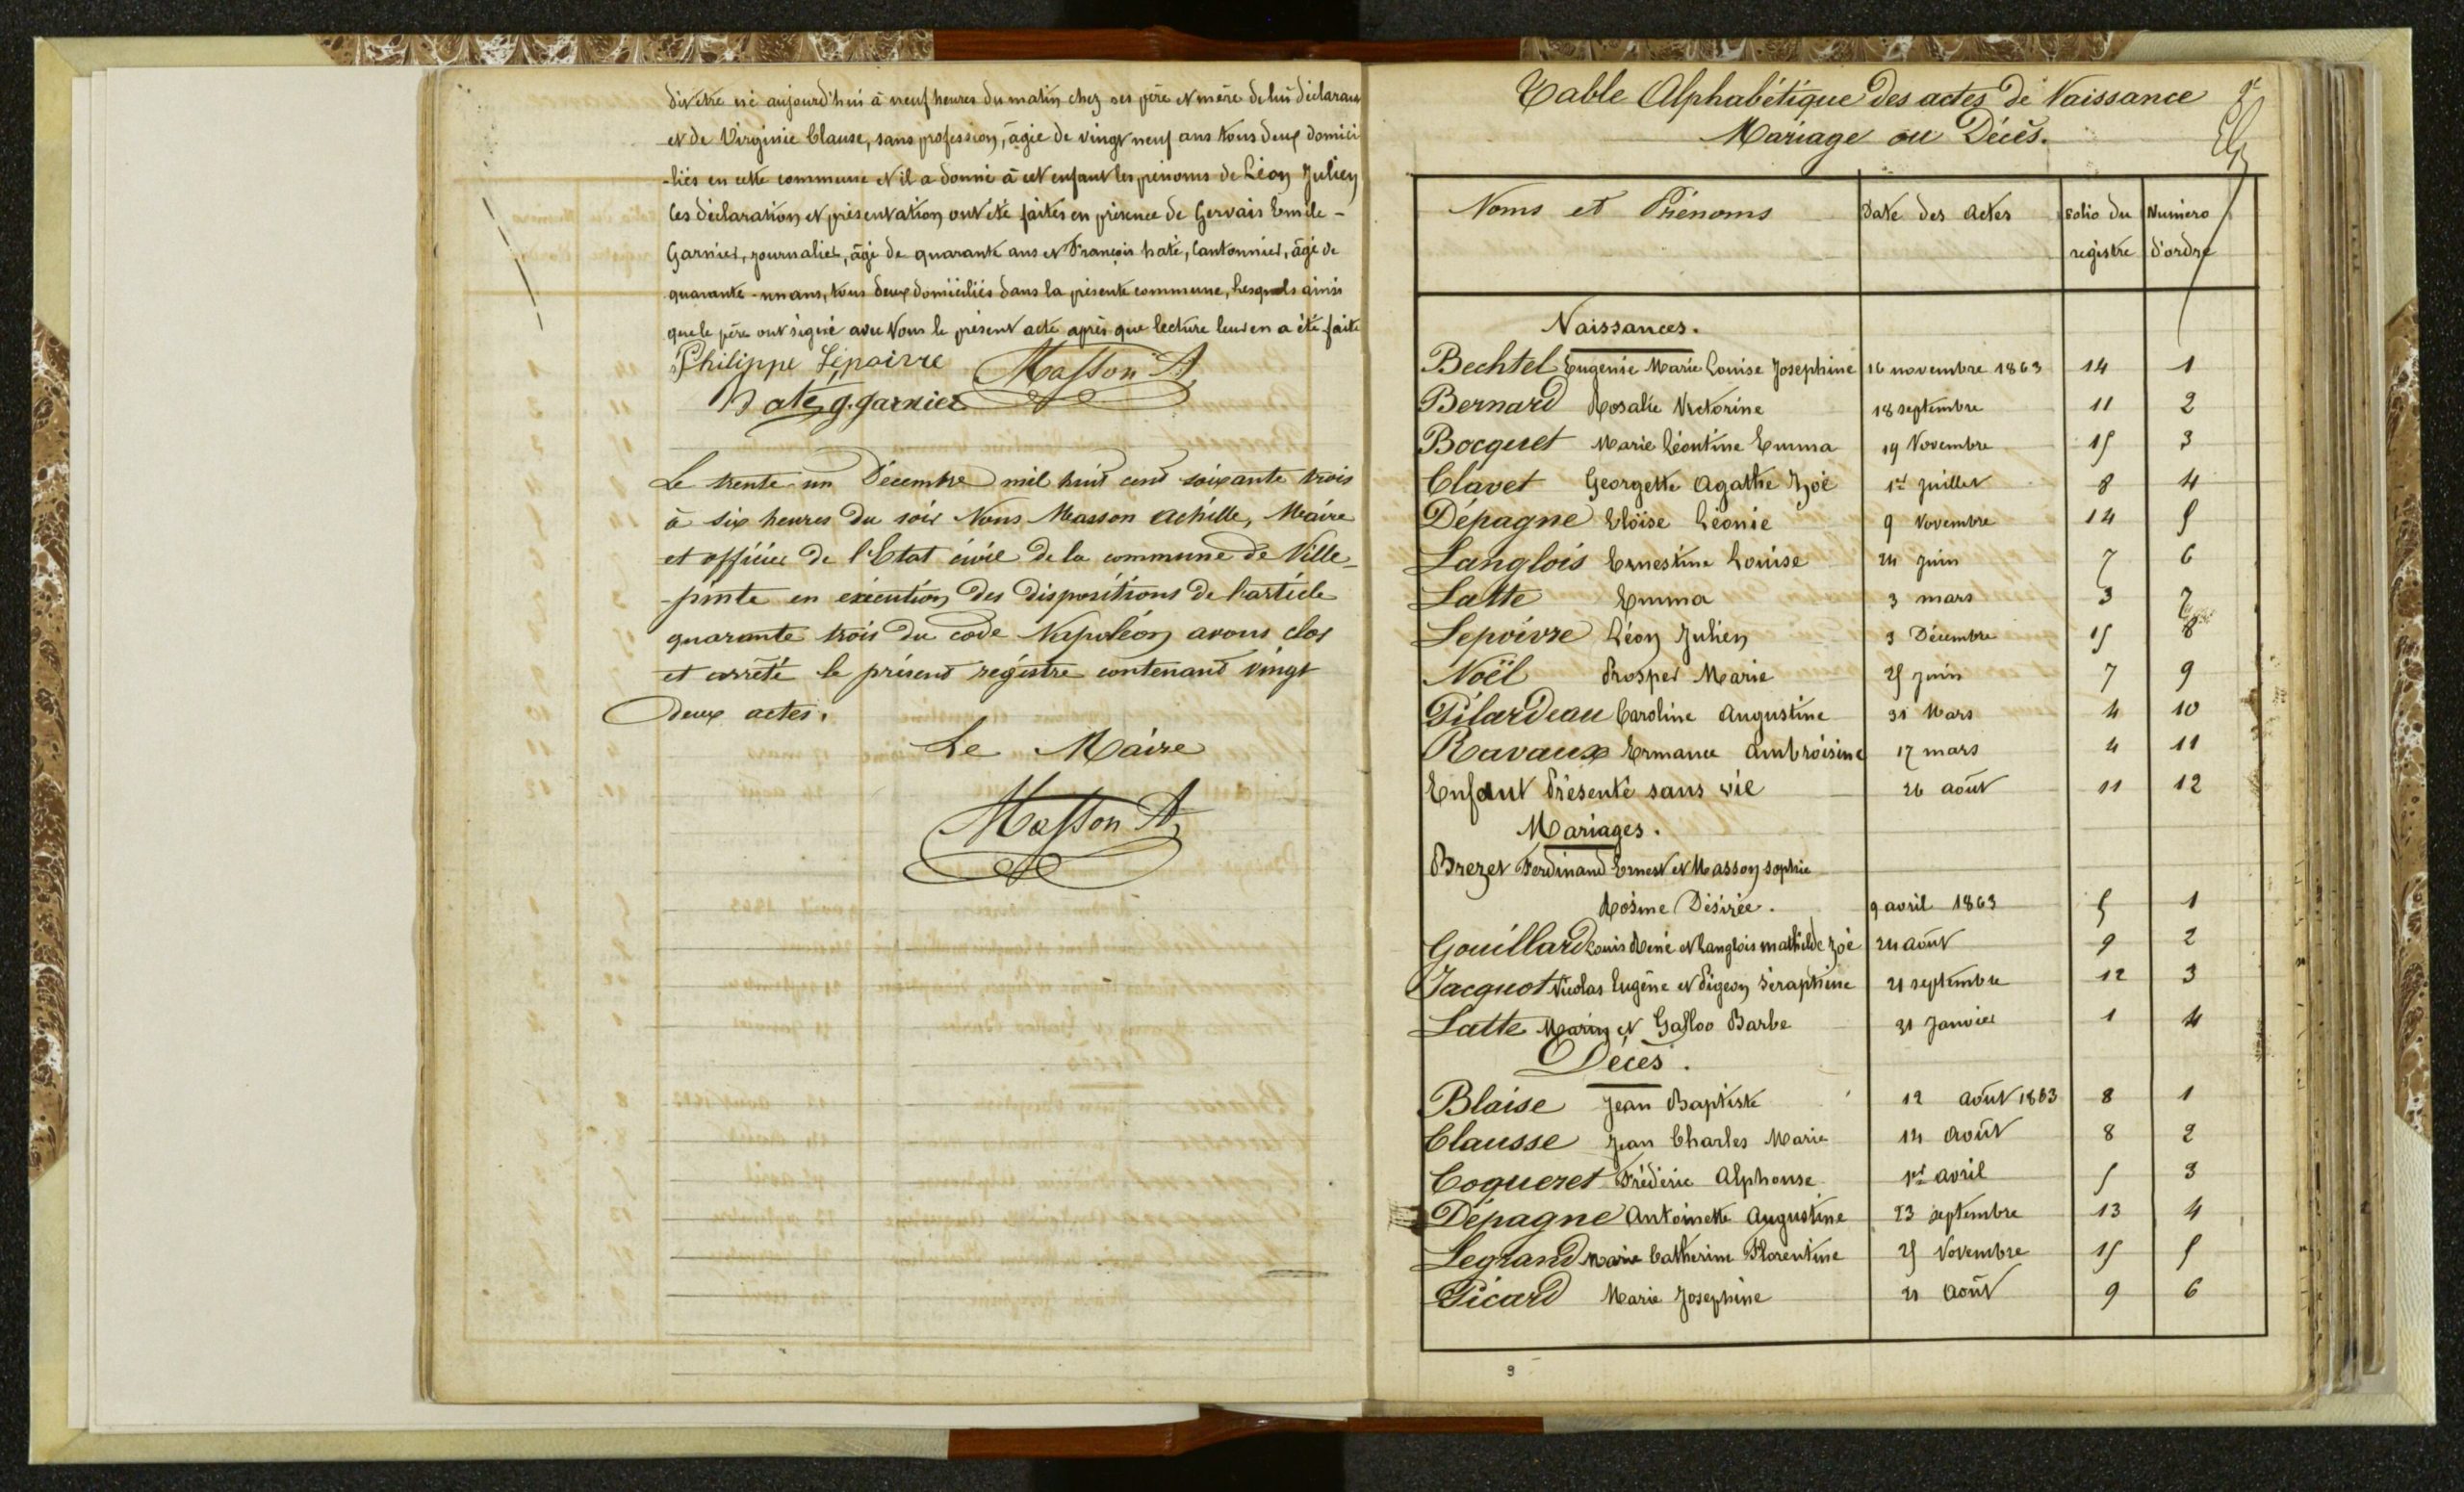 dit être né aujourd'hui à neuf heures du matin chez ses père et mère de lui déclarant
et de Virginie Clause, sans profession, âgée de vingt neuf ans tous deux domici
-liés en cette commune et il a donné à cet enfant les prénoms de Léon Julien
ces déclaration et présentation ont été faites en présence de Gervais Emile -
Garnier, journalier, âgé de quarante ans et François haté, Cantonnier, âgé de
quarante-un ans, tous deux domiciliés dans la présente commune, lesquels ainsi
que le père ont signé avec Nous le présent acte après que lecture leur en a été faite
Philippe Lepoivre Masson A
haté g. garnier
Le trente-un Décembre mil huit cent soixante trois
à six heures du soir Nous Masson Achille, Maire
et officier de l'Etat civil de la commune de Ville-
-pinte en exécution des dispositions de l'article
quarante trois du code Napoléon avons clos
et arrêté le présent régistre contenant vingt
deux actes.
Le Maire
Masson A
Table Alphabétique des actes de Naissance
Mariage ou Décès.
Noms et Prénoms Date des Actes folio du régistre Numéro d'ordre
Naissances.
Bechtel Eugenie Marie Louise Josephine 16 novembre 1863 14 1
Bernard Rosalie Victorine 18 septembre 11 2
Bocquet Marie Léontine Emma 19 Novembre 15 3
Clavet Georgette Agathe Zoé 1er Juillet 8 4
Dépagne Eloïse Léonie 9 Novembre 14 5
Langlois Ernestine Louise 24 Juin 7 6
Latte Emma 3 mars 3 7
Lepoivre Léon Julien 3 Décembre 15 8
Noël Prosper Marie 25 juin 7 9
Pilardeau Caroline Augustine 31 Mars 4 10
Ravaux Ermance Ambroisine 17 mars 4 11
Enfant Présenté sans vie 26 août 11 12
Mariages.
Brezet Ferdinand Ernest et Masson Sophie
Rosine Désirée. 9 avril 1863 5 1
Gouillard Louis René et Langlois mathilde Zoé 24 août 9 2
Jacquot Nicolas Eugène et Pigeon Séraphine 21 septembre 12 3
Latte Marin et Galloo Barbe 31 Janvier 1 4
Décès.
Blaise Jean Baptiste 12 août 1863 8 1
Clausse Jean Charles Marie 14 août 8 2
Coqueret Frédéric Alphonse 1er avril 5 3
Dépagne Antoinette Augustine 23 septembre 13 4
Legrand Marie Catherine Florentine 25 Novembre 15 5
Picard Marie Josephine 21 août 9 6
9